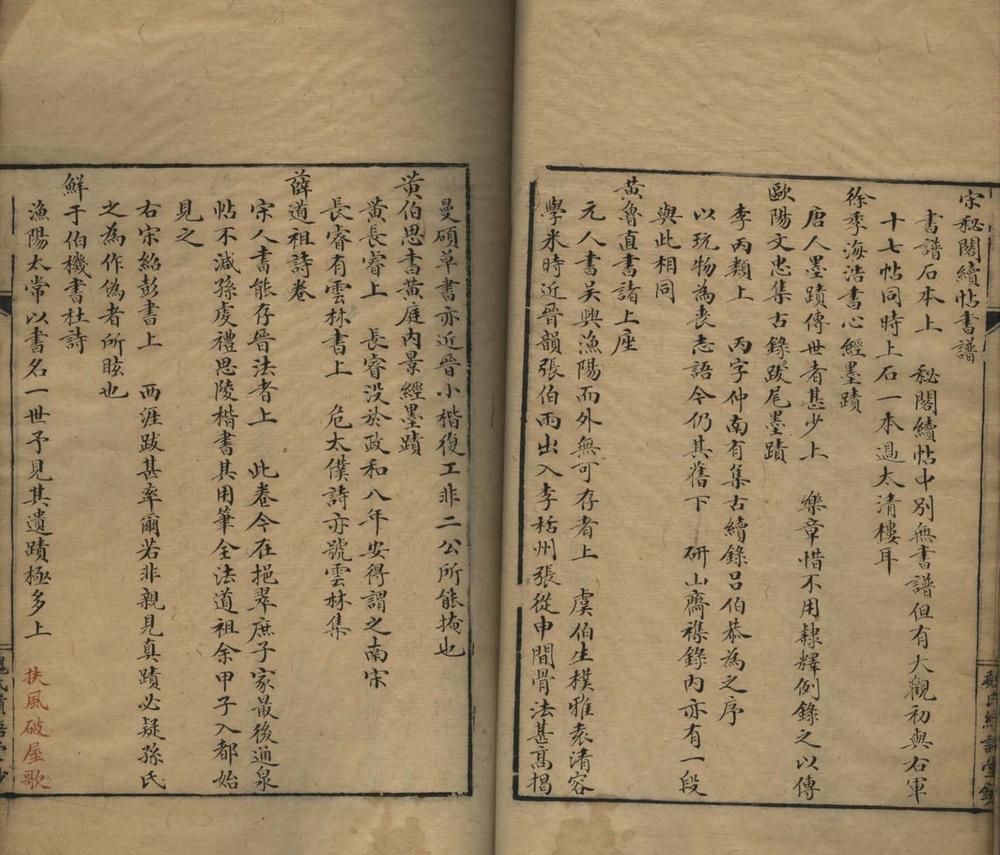 宋秘閣續帖書譜
書譜石本上　秘閣續帖中別無書譜但有大觀初與右軍
十七帖同時上石一本過太清樓耳
徐季海浩書心經墨蹟
唐人墨蹟傳世者甚少上　樂章惜不用隸釋例錄之以傳
歐陽文忠集古錄跋尾墨蹟
李丙類上　丙字仲南有集古續錄呂伯恭為之序
以玩物為喪志語今仍其舊下　研山齋襍錄內亦有一段
與此相同
黃魯直書諸上座
元人書吳興漁陽而外無可存者上　虞伯生樸雅袁清容
學米時近晉韻張伯雨出入李括州張從申間骨法甚高揭
曼碩草書亦近晉小楷復工非二公所能掩也
黃伯思書黃庭內景經墨蹟
黃長睿上　長睿沒於政和八年安得謂之南宋
長睿有雲林書上　危太僕詩亦號雲林集
薛道祖詩卷
宋人書能存晉法者上　此卷今在挹翠庶子家最後通泉
帖不減孫虔禮思陵楷書其用筆全法道祖余甲子入都始
見之
右宋紹彭書上　西涯跋甚率爾若非親見真蹟必疑孫氏
之為作偽者所眩也
鮮于伯機書杜詩
漁陽太常以書名一世予見其遺蹟極多上　扶風破屋歌